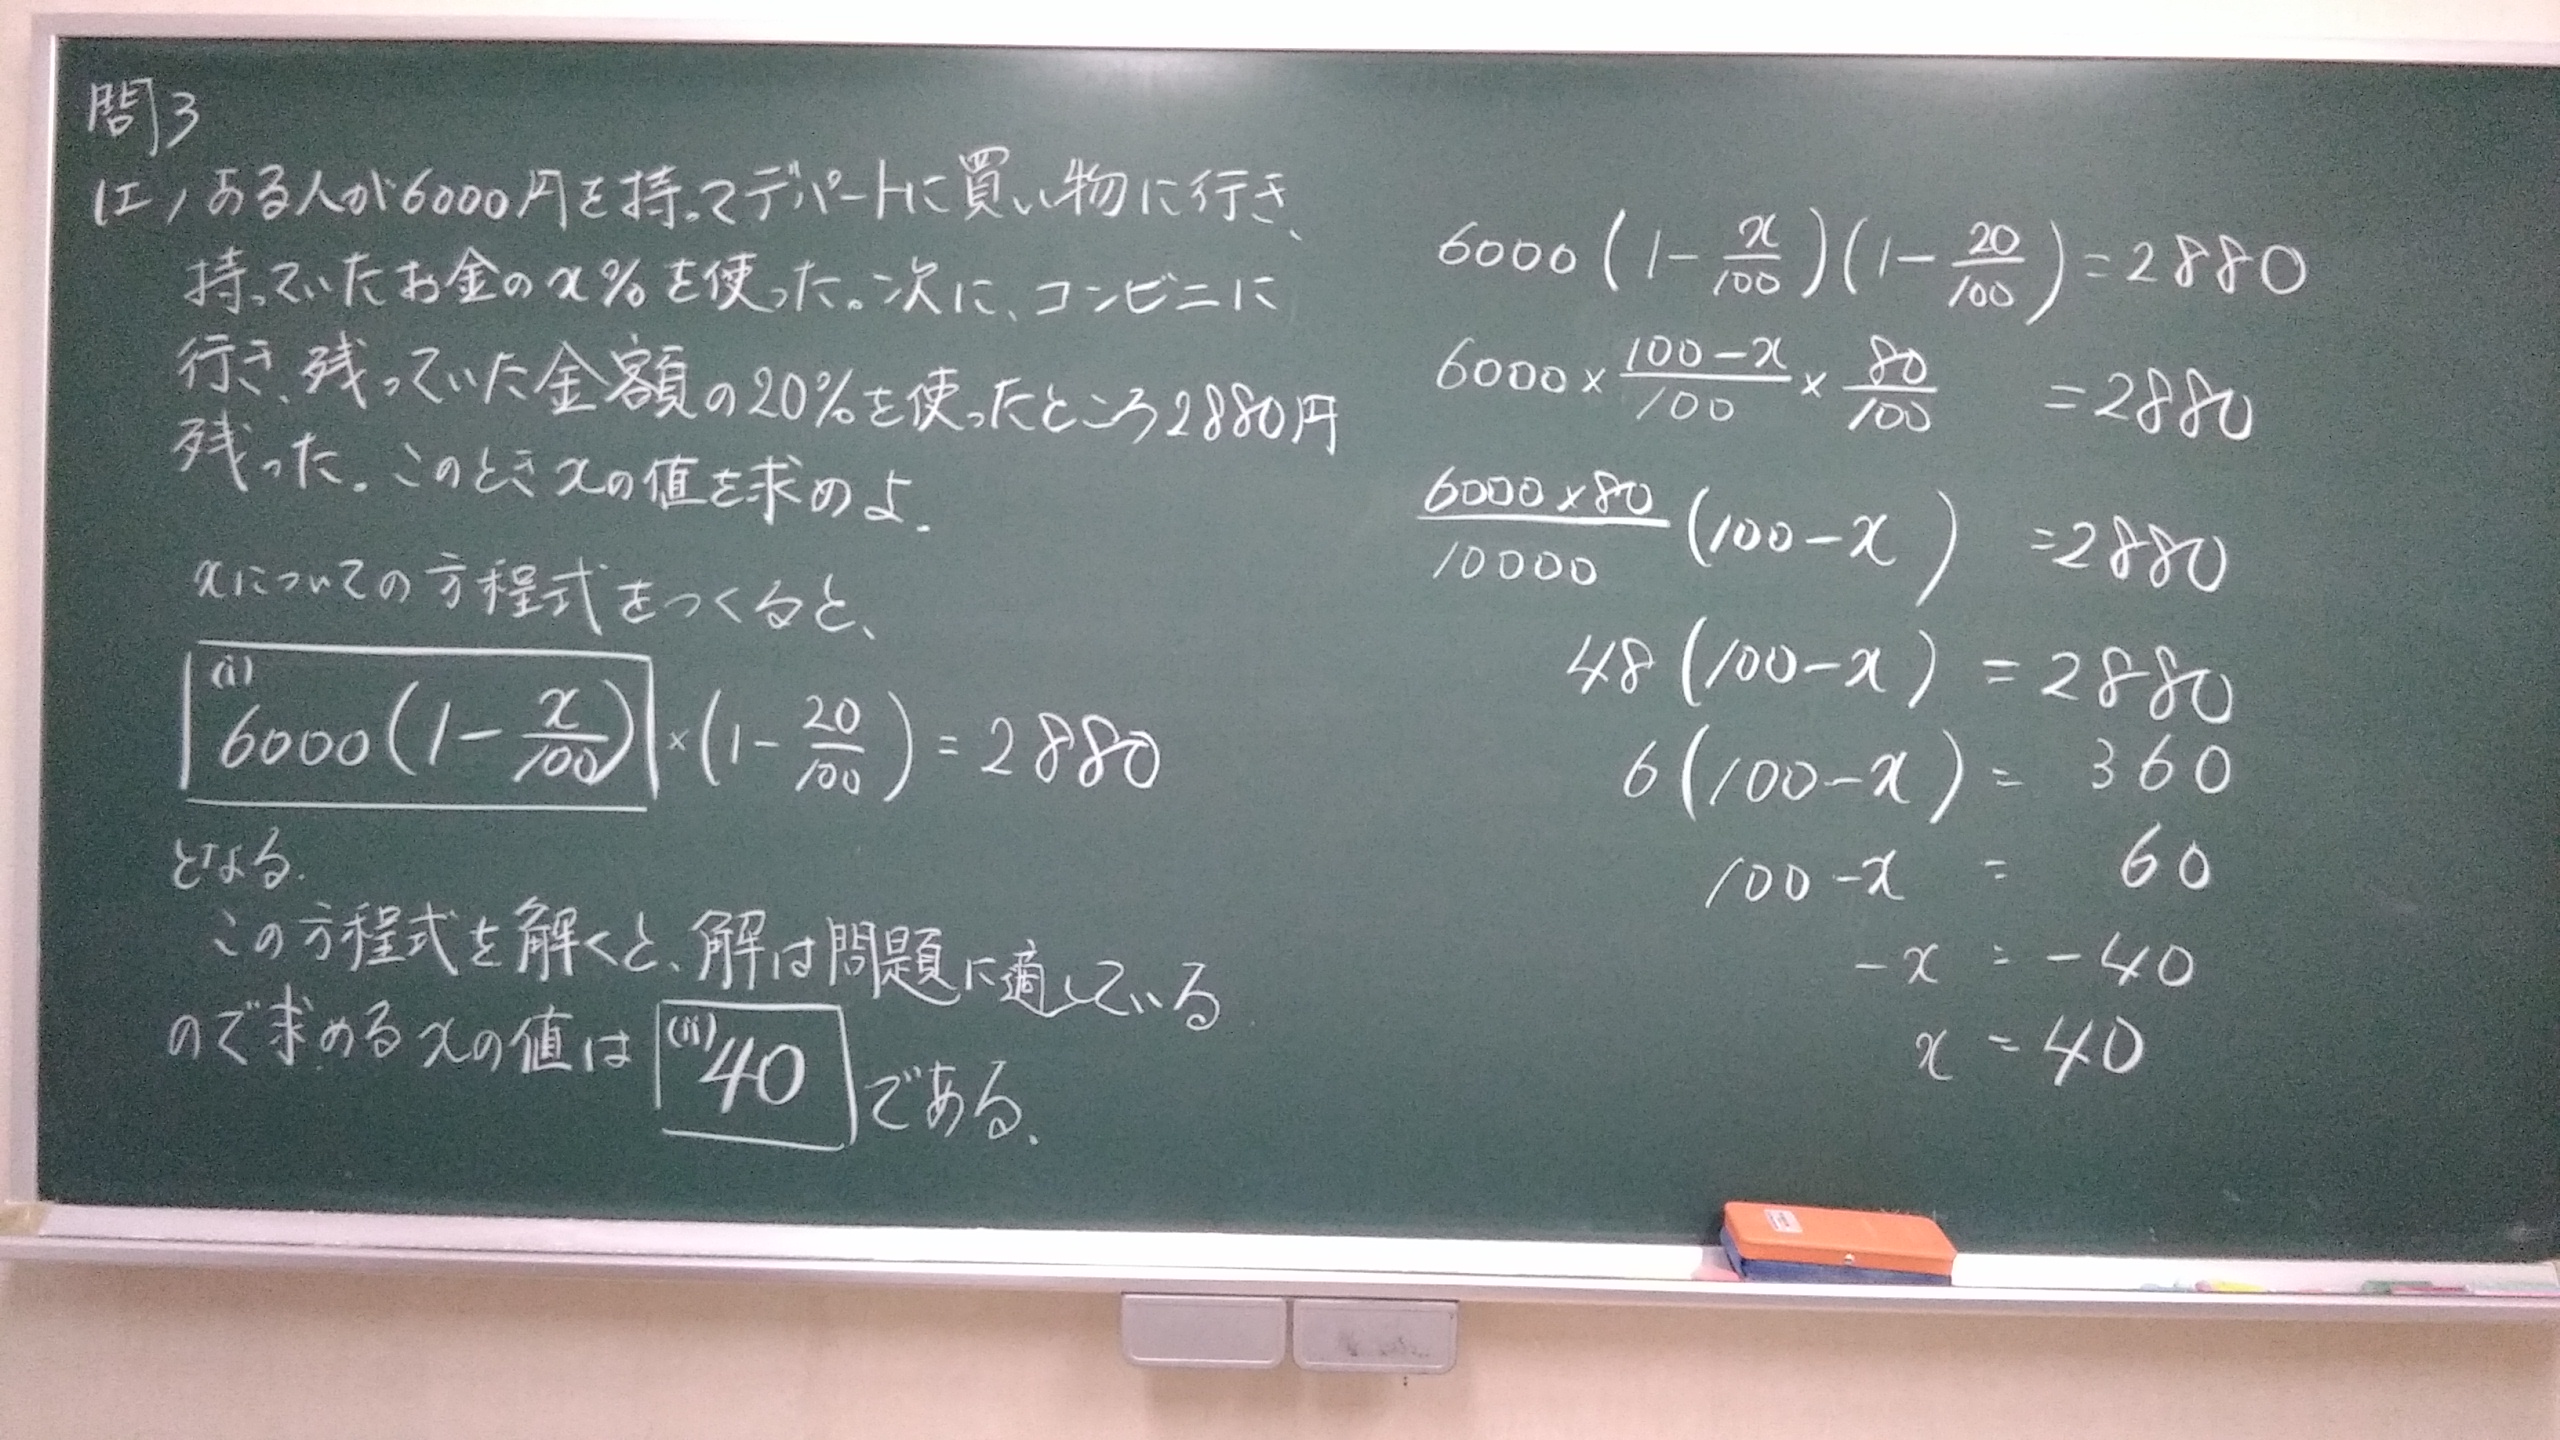 問3
(エ)ある人が6000円を持ってデパートに買い物に行き、
持っていたお金のx%を使った。次に、コンビニに
行き、残っていた金額の20%を使ったところ2880円
残った。このときxの値を求めよ.
xについての方程式をつくると、
(i) 6000(1-x/100)×(1-20/100)=2880
となる.
この方程式を解くと、解は問題に適している
ので求めるxの値は (ii) 40 である.
6000(1-x/100)(1-20/100)=2880
6000×(100-x)/100×80/100=2880
6000×80/10000(100-x)=2880
48(100-x)=2880
6(100-x)=360
100-x=60
-x=-40
x=40